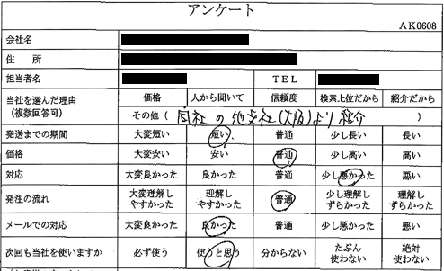 アンケート
AK0608
会社名
住 所
担当者名 TEL
当社を選んだ理由 (複数回答可) 価格 人から聞いて 信頼度 検索上位だから 紹介だから
その他( 同社の他支社(大阪)より紹介 )
発送までの期間 大変短い 短い 普通 少し長い 長い
価格 大変安い 安い 普通 少し高い 高い
対応 大変良かった 良かった 普通 少し悪かった 悪い
発注の流れ 大変理解しやすかった 理解しやすかった 普通 少し理解しずらかった 理解しずらかった
メールでの対応 大変良かった 良かった 普通 少し悪かった 悪い
次回も当社を使いますか 必ず使う 使うと思う 分からない たぶん使わない 絶対使わない